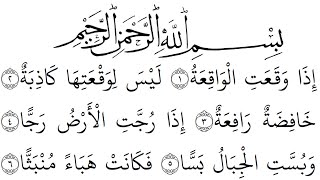 بِسْمِ اللَّهِ الرَّحْمَٰنِ الرَّحِيمِ
إِذَا وَقَعَتِ الْوَاقِعَةُ ١ لَيْسَ لِوَقْعَتِهَا كَاذِبَةٌ ٢
خَافِضَةٌ رَافِعَةٌ ٣ إِذَا رُجَّتِ الْأَرْضُ رَجًّا ٤
وَبُسَّتِ الْجِبَالُ بَسًّا ٥ فَكَانَتْ هَبَاءً مُنْبَثًّا ٦